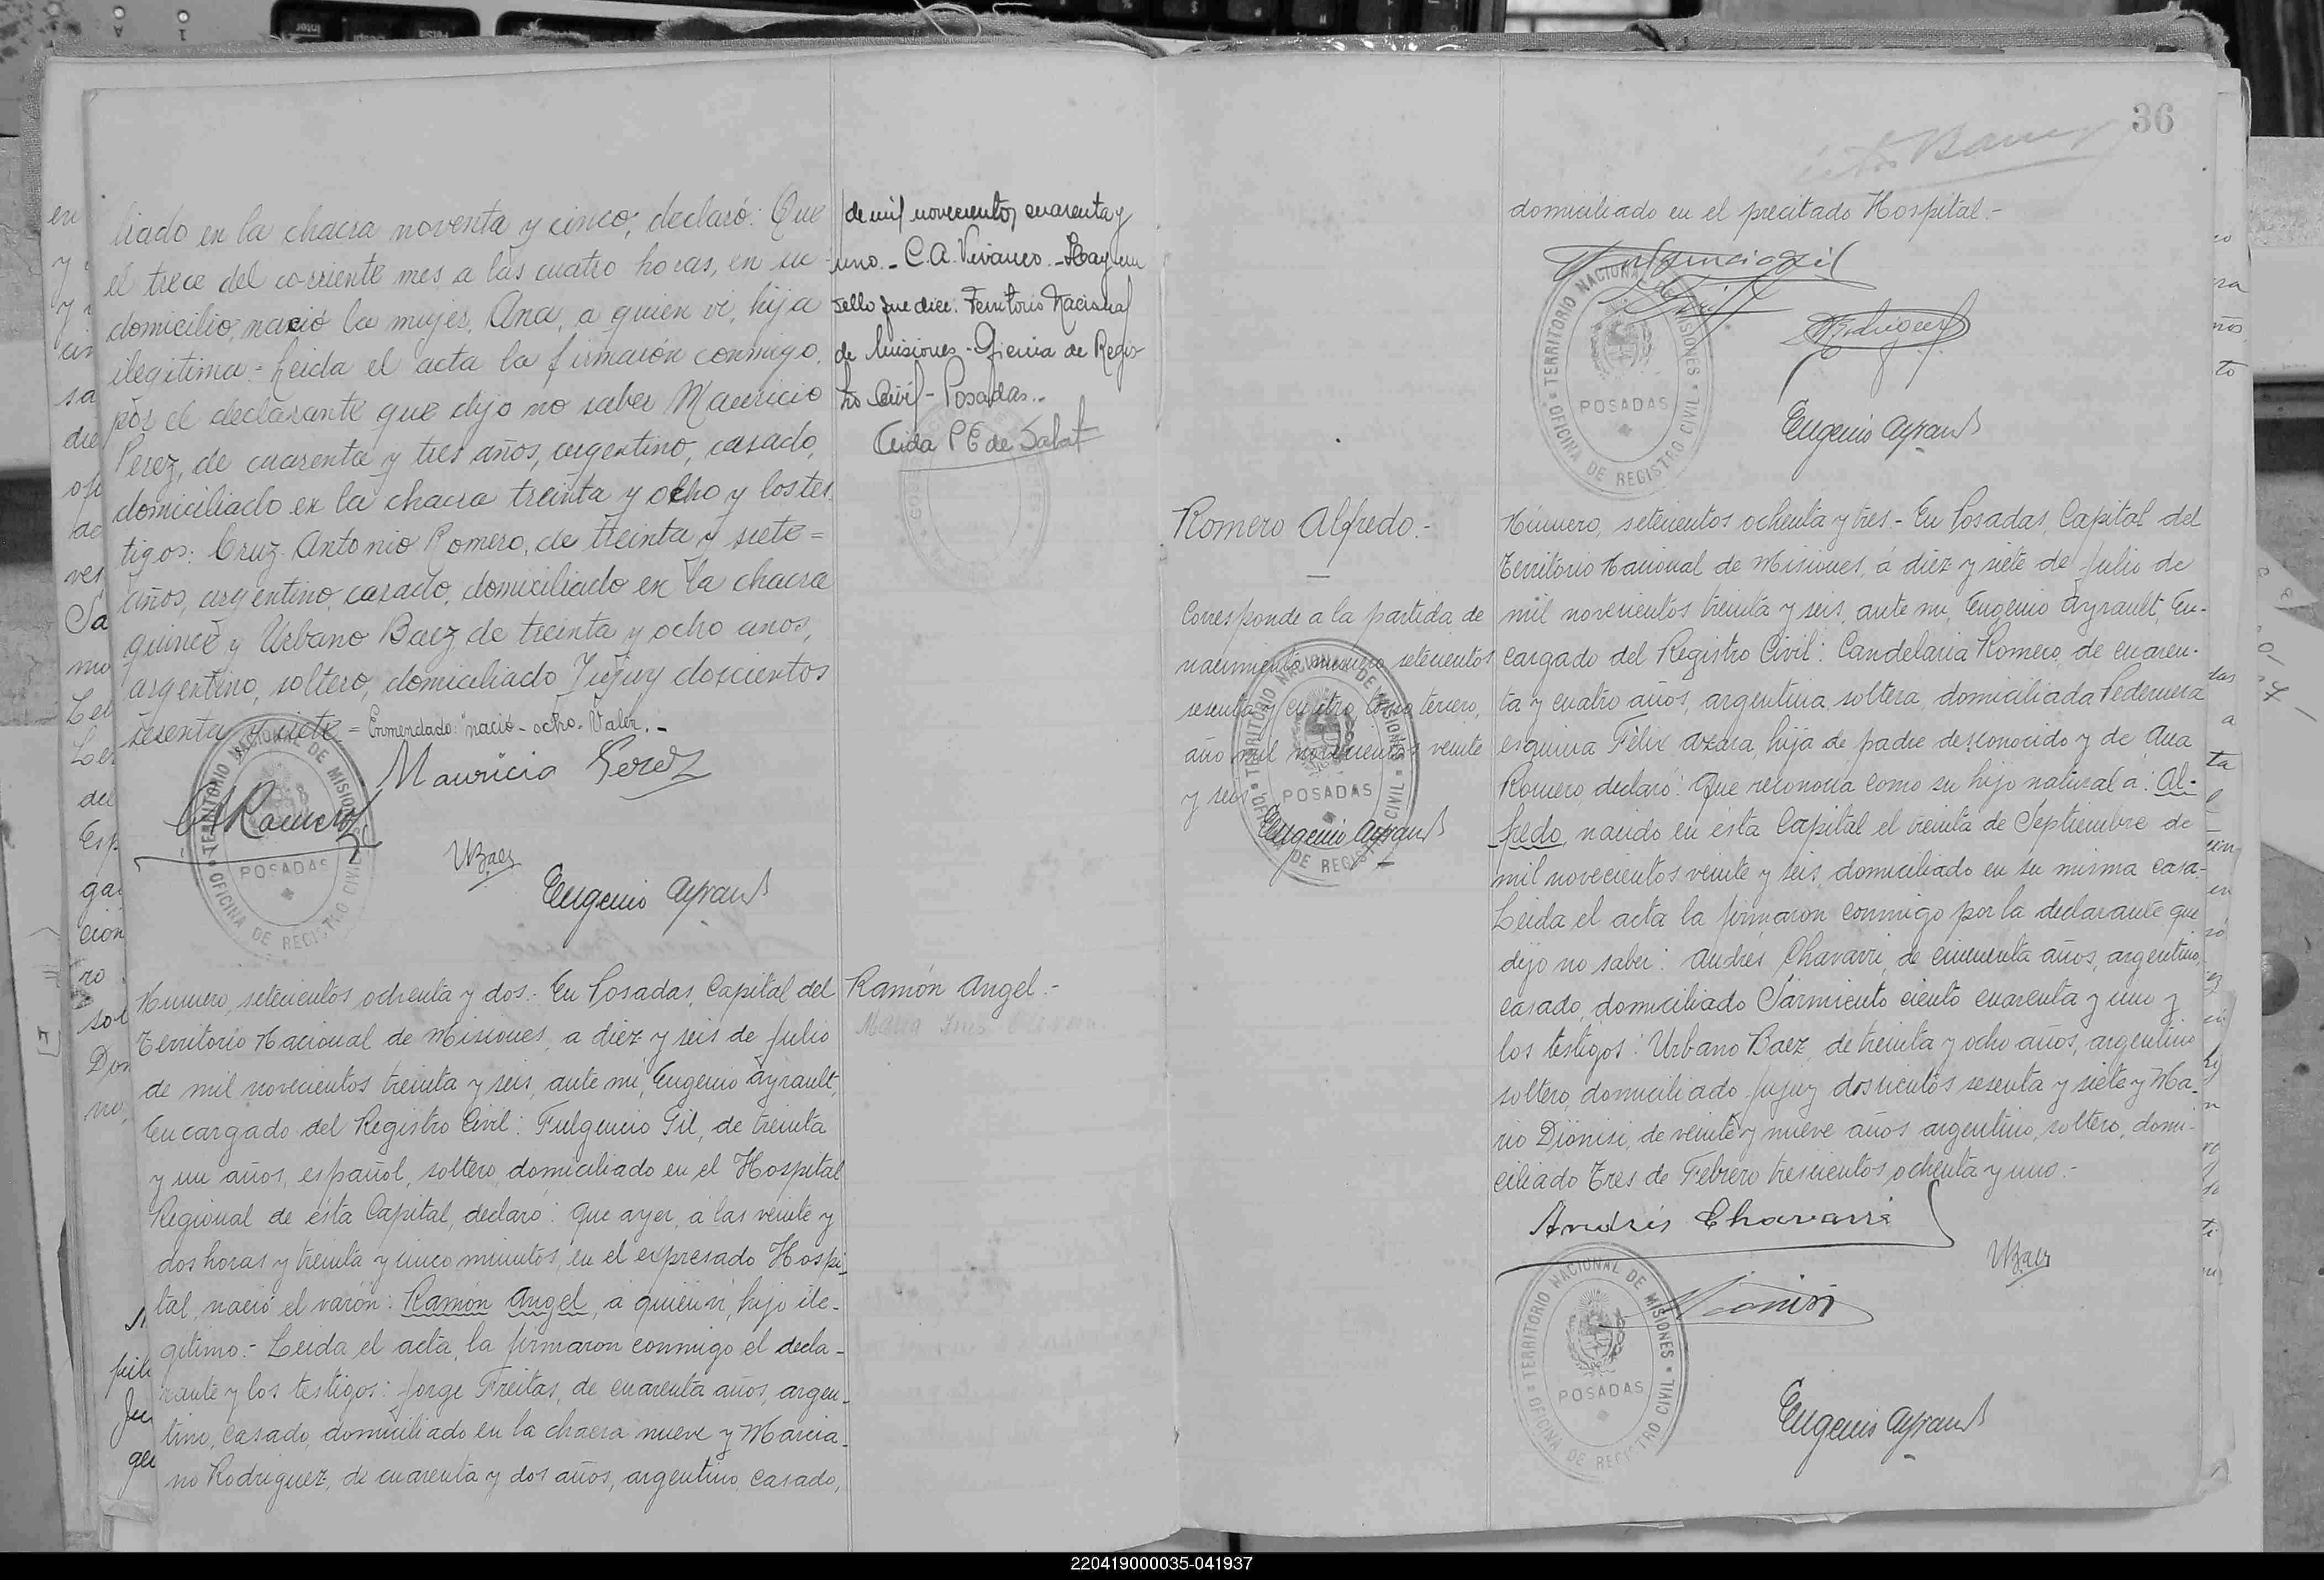 liado en la chacra noventa y cinco, declaró: Que
el trece del corriente mes a las cuatro horas, en su
domicilio, nació la mujer, Ana, a quien vi, hija
ilegitima = Leida el acta la firmaron conmigo,
por el declarante que dijo no saber Mauricio
Perez, de cuarenta y tres años, argentino, casado,
domiciliado en la chacra treinta y ocho y los tes
tigos: Cruz Antonio Romero, de treinta y siete =
años, argentino, casado, domiciliado en la chacra
quince y Urbano Baez, de treinta y ocho anos,
argentino, soltero, domiciliado Jujuy doscientos
sesenta y siete = Enmendado: "nació - ocho. Valen. -
Mauricio Perez
CARomero
UBaez
Eugenio Ayrault
TERRITORIO NACIONAL DE MISIONES
POSADAS
OFICINA DE REGISTRO CIVIL
de mil novecientos cuarenta y
uno. - C. A. Vivanco. - Hay un
sello que dice: Territorio Nacional
de Misiones - Oficina de Regis-
tro Civil - Posadas. -
Número, setecientos ochenta y dos. - En Posadas, Capital del
Territorio Nacional de Misiones, a diez y seis de Julio
de mil novecientos treinta y seis, ante mi, Eugenio Ayrault,
Encargado del Registro Civil: Fulgencio Gil, de treinta
y un años, español, soltero, domiciliado en el Hospital
Regional de ésta Capital, declaró: Que ayer, a las veinte y
dos horas y treinta y cinco minutos, en el expresado Hospi-
tal, nació el varón: Ramón Angel, a quien vi, hijo ile-
gitimo. - Leida el acta, la firmaron conmigo el decla-
rante y los testigos: Jorge Freitas, de cuarenta años, argen-
tino, casado, domiciliado en la chacra nueve y Marcia-
no Rodriguez, de cuarenta y dos años, argentino, casado,
Ramón Angel. -
36
domiciliado en el precitado Hospital. -
Fulgencio Gil
TERRITORIO NACIONAL DE MISIONES
POSADAS
OFICINA DE REGISTRO CIVIL
Eugenio Ayrault
Romero Alfredo. -
Corresponde a la partida de
nacimiento número setecientos
sesenta y cuatro, tomo tercero,
año mil novecientos veinte
y seis.
Eugenio Ayrault
TERRITORIO NACIONAL DE MISIONES
POSADAS
OFICINA DE REGISTRO CIVIL
Número, setecientos ochenta y tres. - En Posadas, Capital del
Territorio Nacional de Misiones, á diez y siete de Julio de
mil novecientos treinta y seis, ante mi, Eugenio Ayrault, En-
cargado del Registro Civil: Candelaria Romero, de cuaren-
ta y cuatro años, argentina, soltera, domiciliada Pedernera
esquina Félix Azara, hija de padre desconocido y de Ana
Romero, declaró: Que reconocia como su hijo natural á: Al-
fredo, nacido en ésta Capital el treinta de Septiembre de
mil novecientos veinte y seis, domiciliado en su misma casa. -
Leida el acta la firmaron conmigo por la declarante que
dijo no saber: Andrés Chavarri, de cincuenta años, argentino,
casado, domiciliado Sarmiento ciento cuarenta y uno y
los testigos: Urbano Baez, de treinta y ocho años, argentino
soltero, domiciliado Jujuy doscientos sesenta y siete y Ma-
rio Dionisi, de veinte y nueve años argentino, soltero, domi-
ciliado Tres de Febrero trescientos ochenta y uno. -
Andrés Chavarri
UBaez
Dionisi
TERRITORIO NACIONAL DE MISIONES
POSADAS
OFICINA DE REGISTRO CIVIL
Eugenio Ayrault
220419000035-041937